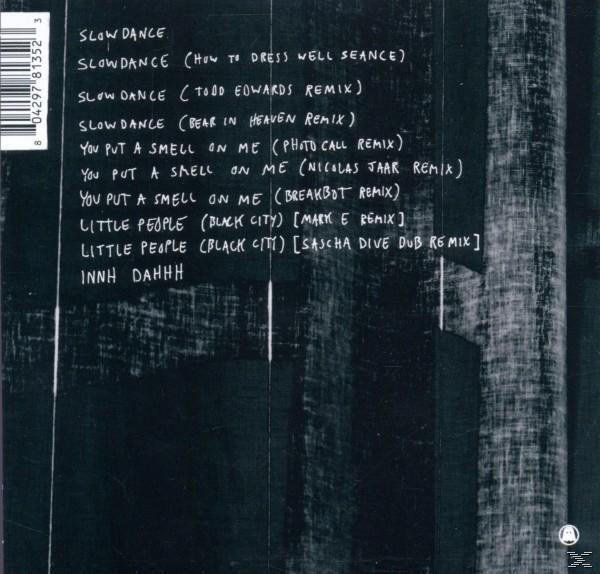 SLOWDANCE
SLOWDANCE (HOW TO DRESS WELL SEANCE)
SLOWDANCE (TODD EDWARDS REMIX)
SLOWDANCE (BEAR IN HEAVEN REMIX)
YOU PUT A SMELL ON ME (PHOTOCALL REMIX)
YOU PUT A SMELL ON ME (NICOLAS JAAR REMIX)
YOU PUT A SMELL ON ME (BREAKBOT REMIX)
LITTLE PEOPLE (BLACK CITY) [MARK E REMIX]
LITTLE PEOPLE (BLACK CITY) [SASCHA DIVE DUB REMIX]
INNH DAHHH
8 04297 81352 3